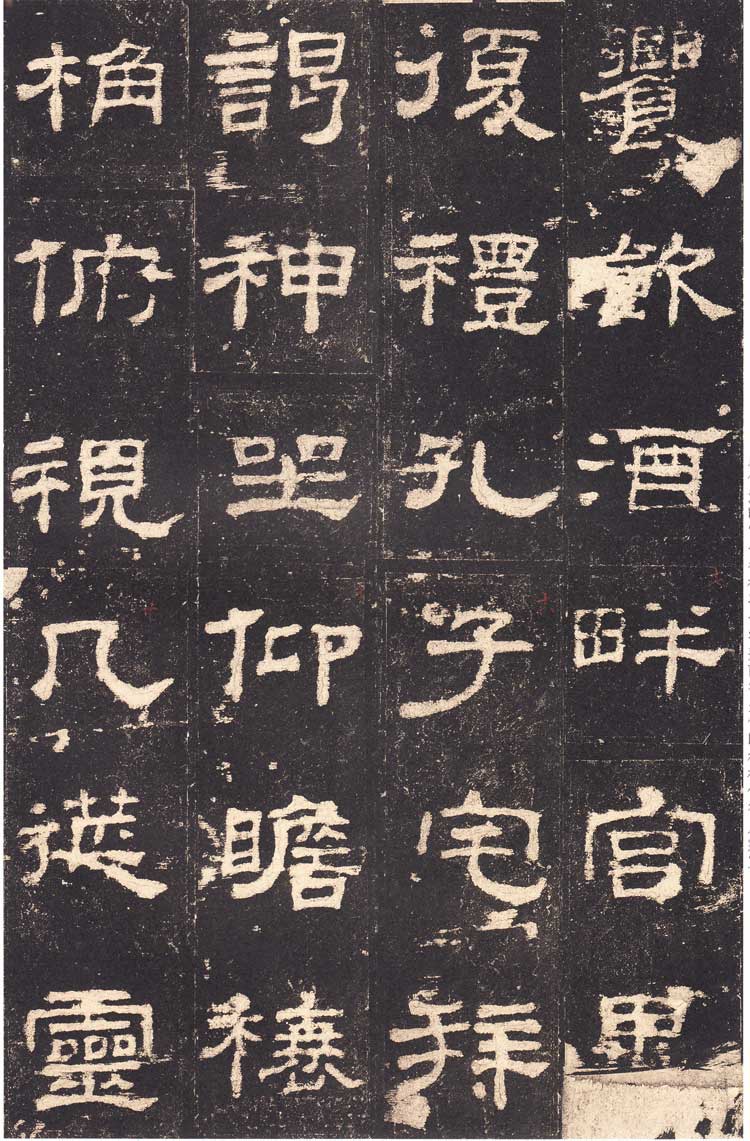 饗飲酒畔宮畢
復禮孔子宅拜
謁神坐仰瞻榱
桷俯視几筵靈